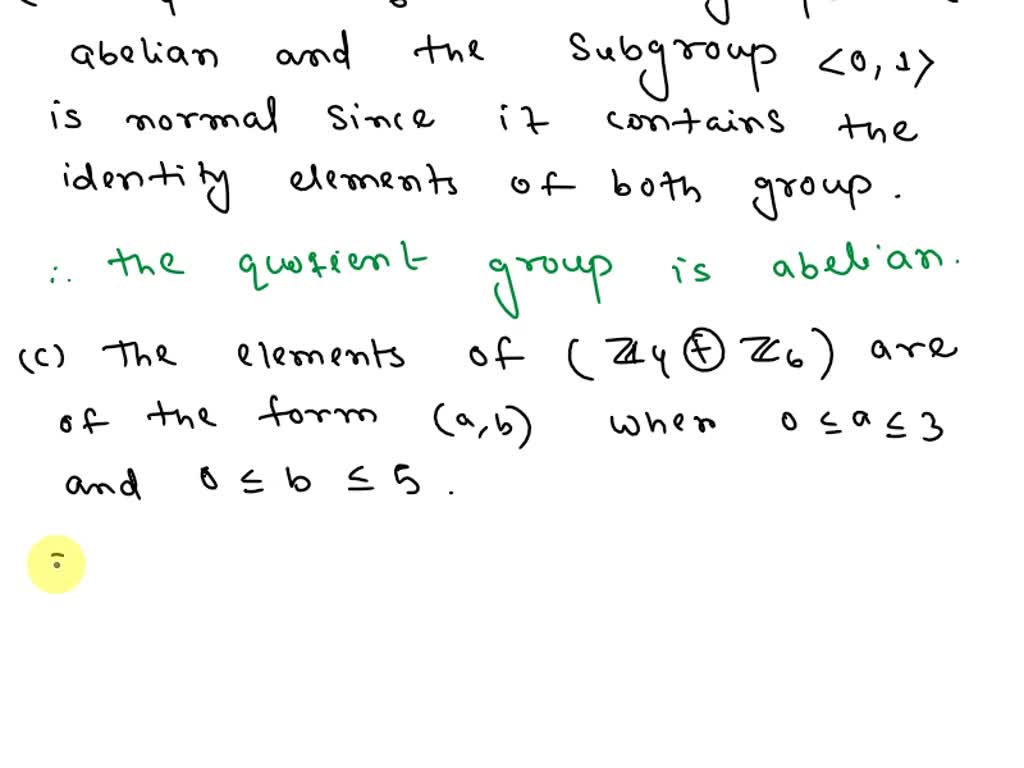 abelian and the subgroup <0, 1>
is normal since it contains the
identity elements of both group.
∴ the quotient group is abelian.
(c) The elements of (ℤ4 ⊕ ℤ6) are
of the form (a,b) when 0 ≤ a ≤ 3
and 0 ≤ b ≤ 5.